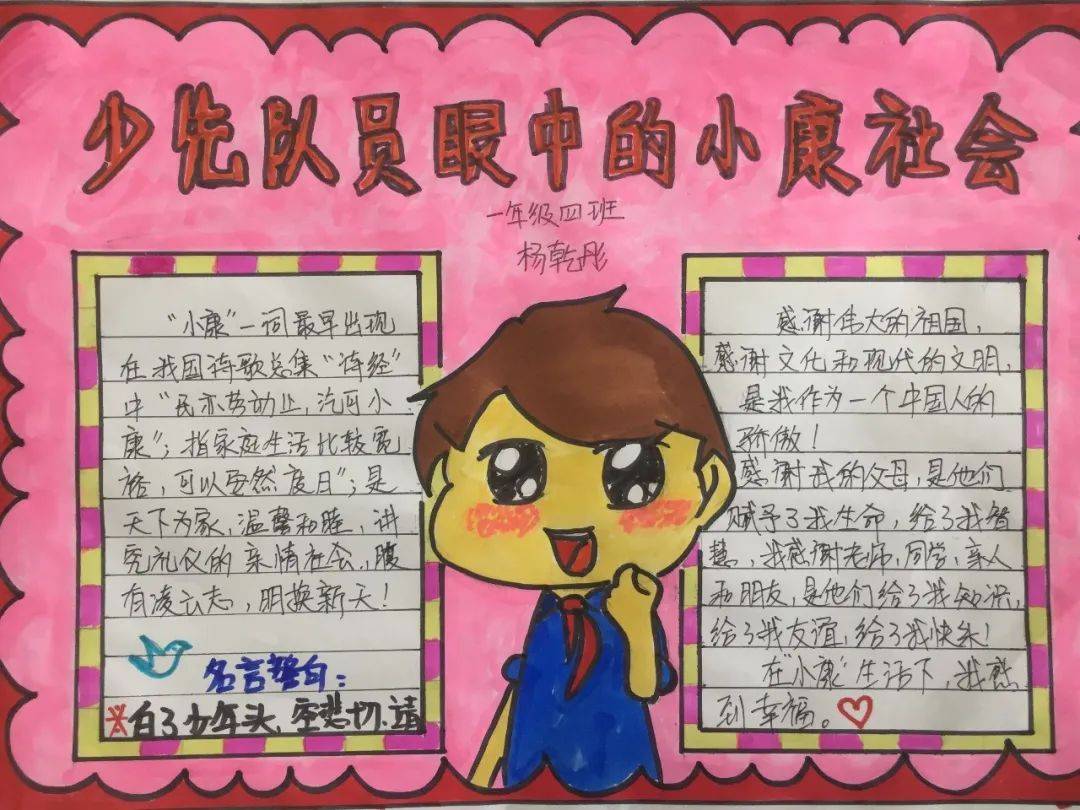 少先队员眼中的小康社会
一年级四班
杨乾彤
“小康”一词最早出现
在我国诗歌总集“诗经”
中“民亦劳动止，汔可小
康”；指家庭生活比较宽
裕，可以安然度日”；是
天下为家，温馨和睦，讲
究礼仪的亲情社会，腹
有凌云志，明换新天！
名言警句：
※白了少年头，空悲切。靖
感谢伟大的祖国，
感谢文化和现代的文明，
是我作为一个中国人的
骄傲！
感谢我的父母，是他们
赋予了我生命，给了我智
慧，我感谢老师，同学，亲人
和朋友，是他们给了我知识，
给了我友谊，给了我快乐！
在“小康”生活下，我感
到幸福。